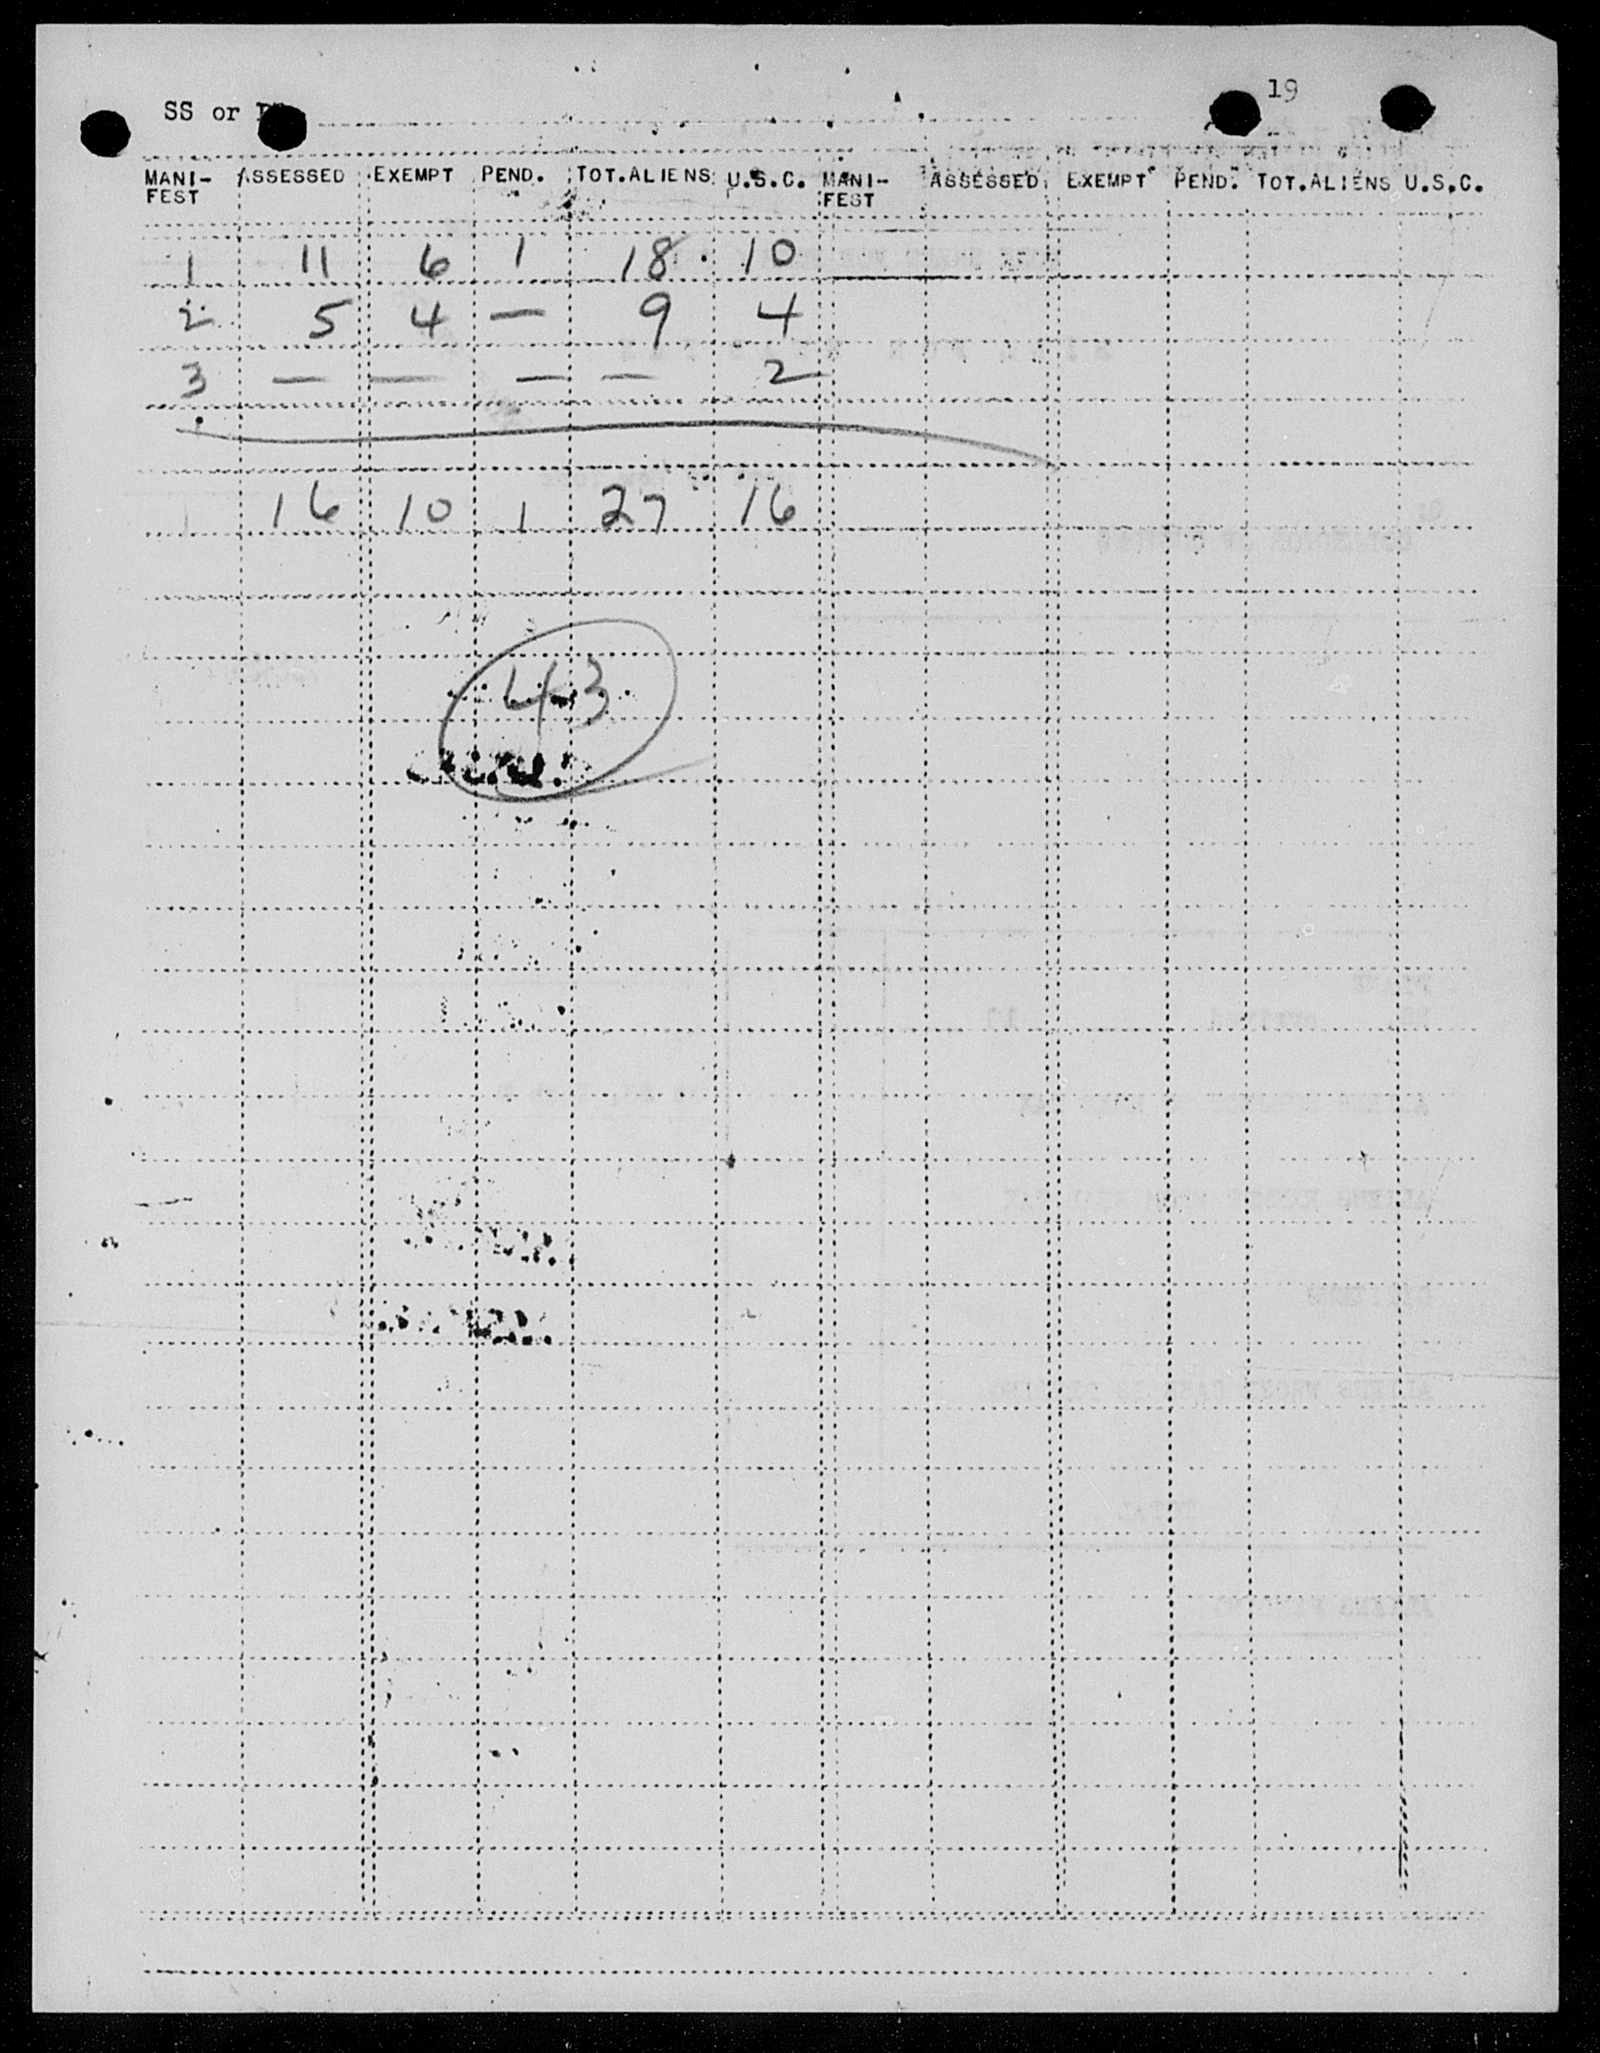 19
SS or
MANI-FEST ASSESSED EXEMPT PEND. TOT.ALIENS U.S.C. MANI-FEST ASSESSED EXEMPT PEND. TOT.ALIENS U.S.C.
1 11 6 1 18 10
2 5 4 — 9 4
3 — — — — 2
16 10 1 27 16
43